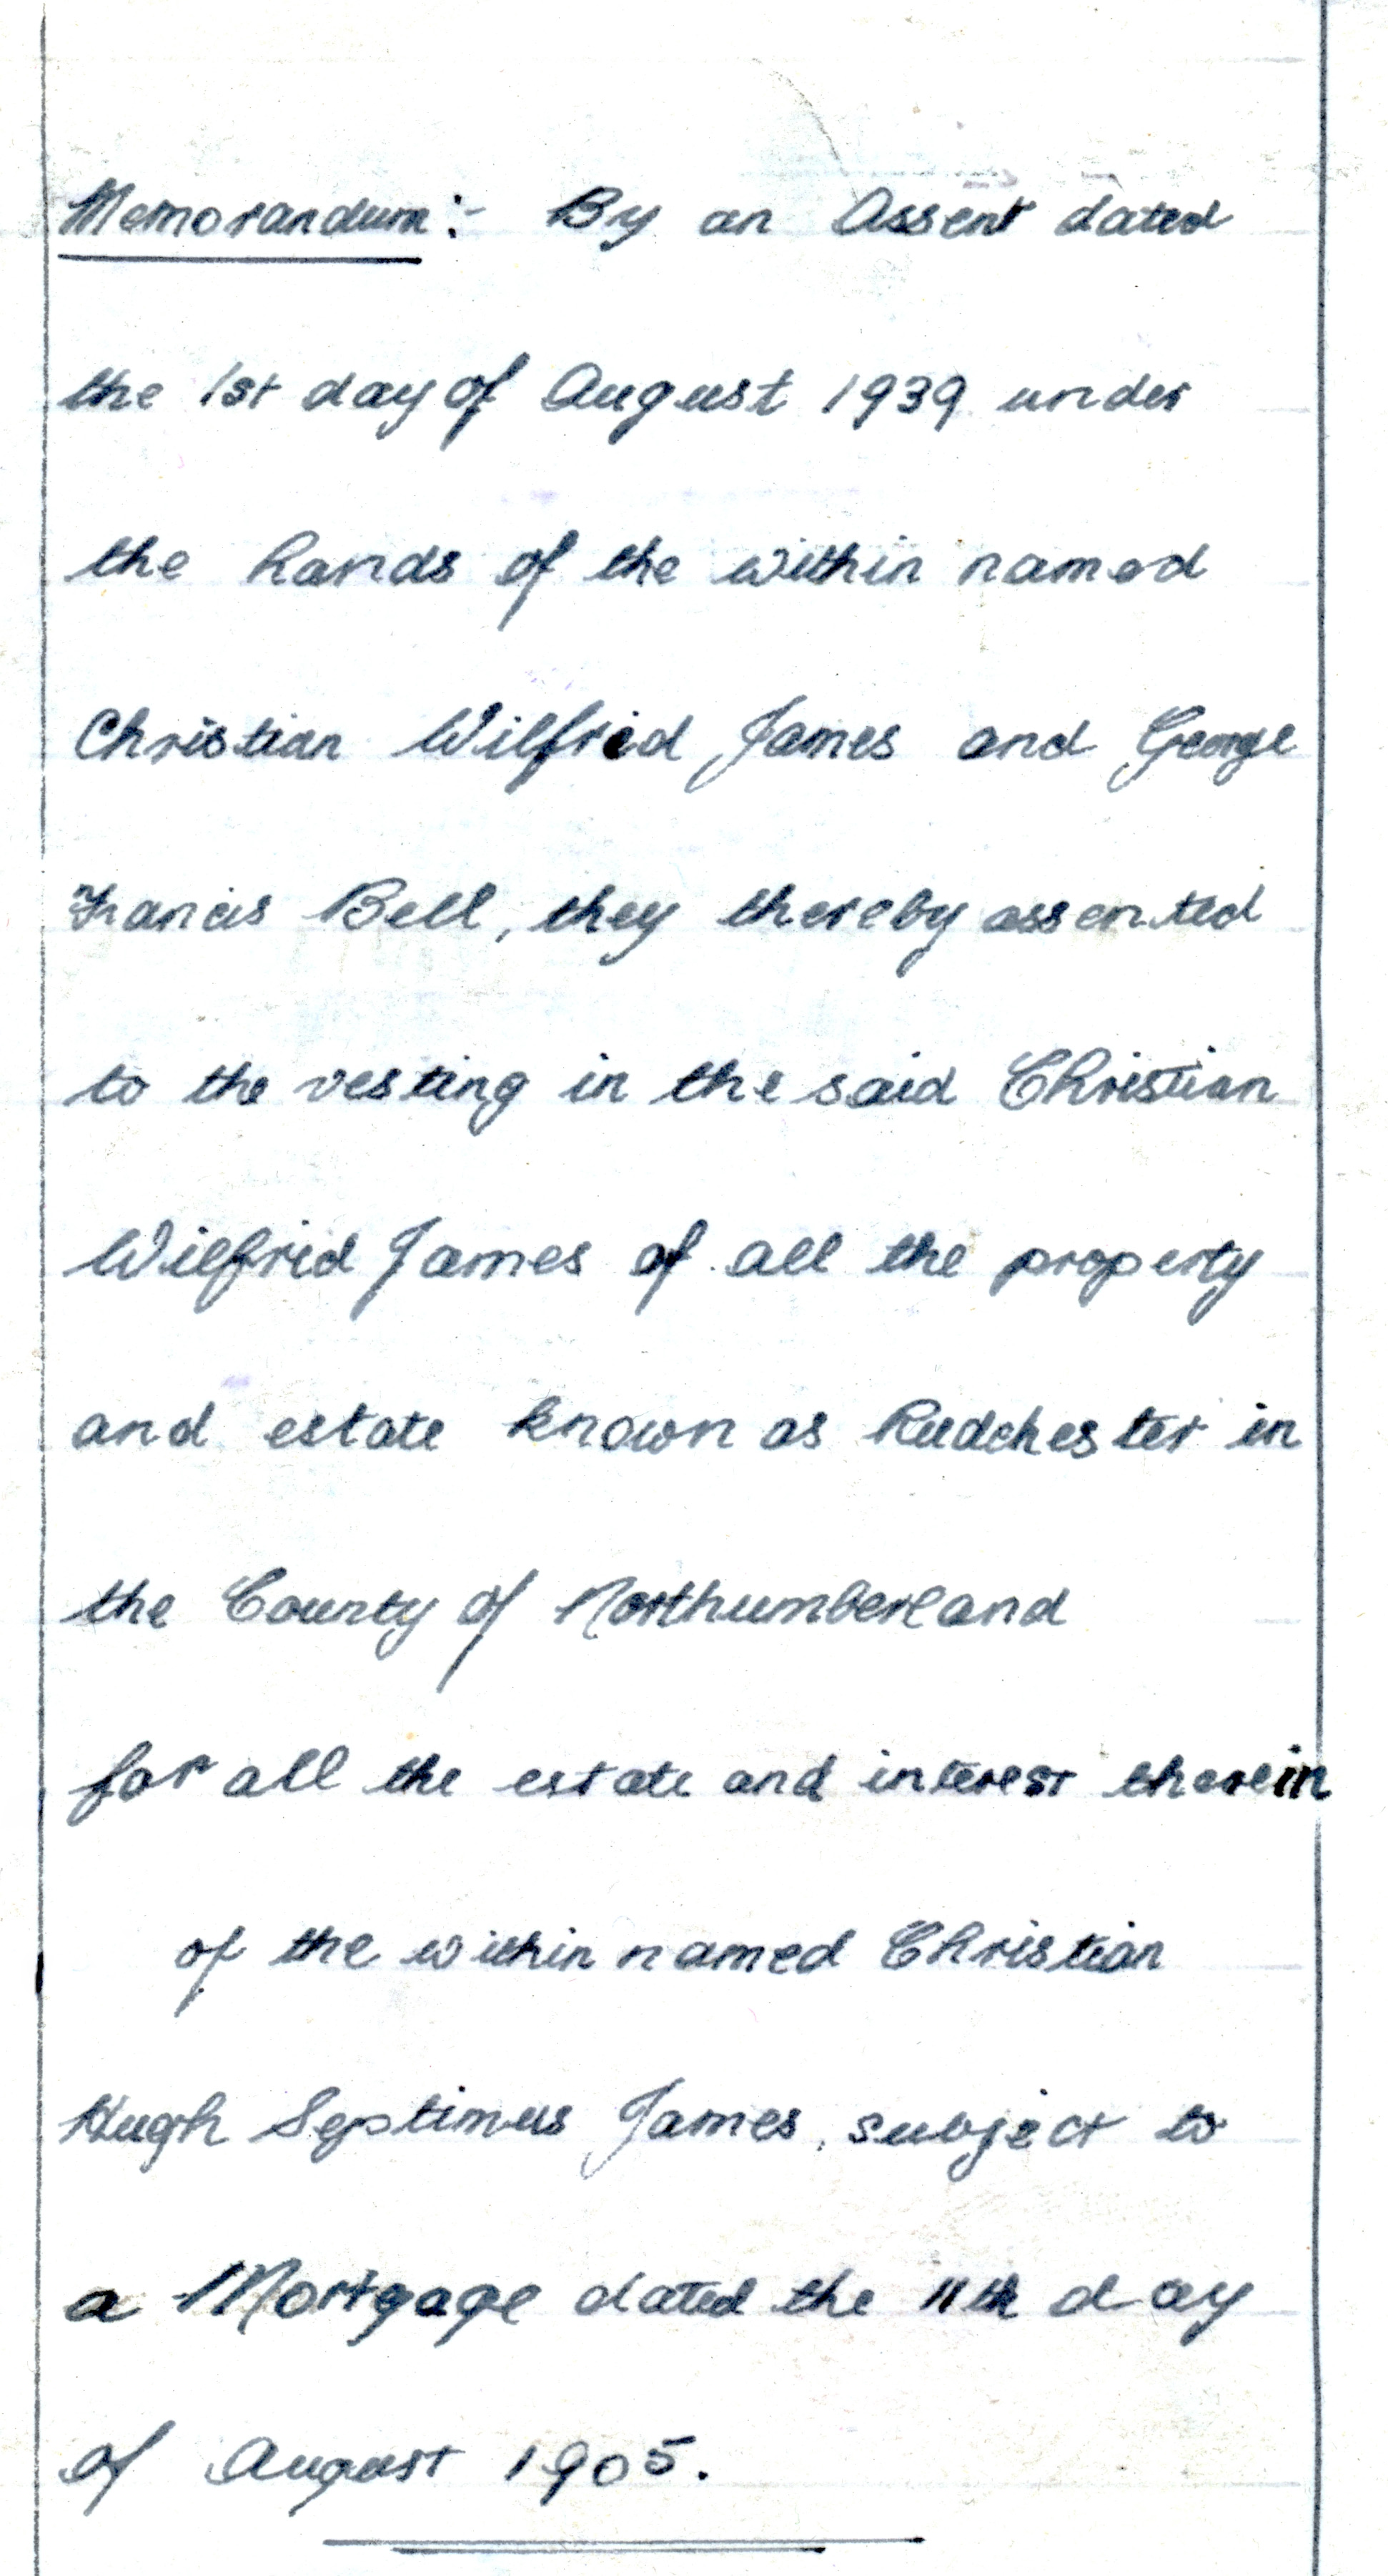 Memorandum:- By an Assent dated
the 1st day of August 1939 under
the hands of the within named
Christian Wilfrid James and George
Francis Bell, they thereby assented
to the vesting in the said Christian
Wilfrid James of all the property
and estate known as Rudchester in
the County of Northumberland
for all the estate and interest therein
of the within named Christian
Hugh Septimus James, subject to
a Mortgage dated the 11th day
of August 1905.